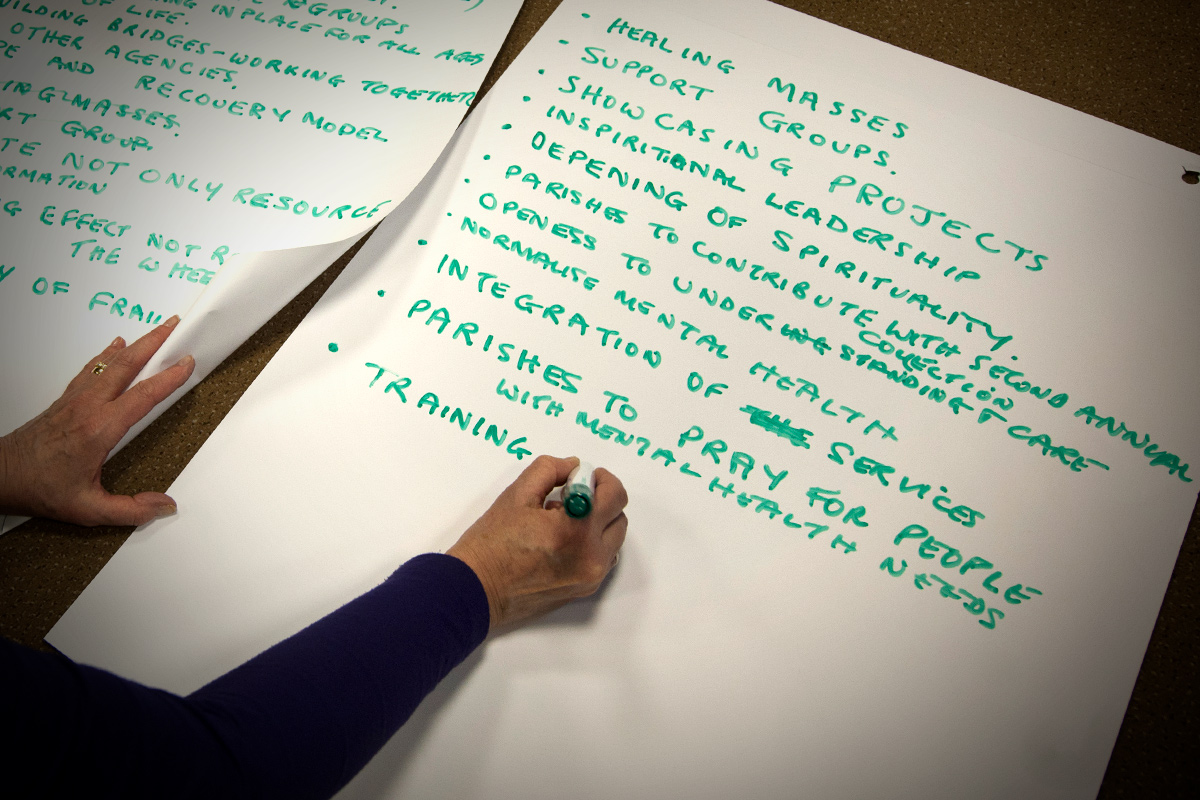 GROUPS
IN PLACE FOR ALL AGES
OF LIFE.
BRIDGES - WORKING TOGETHER
OTHER AGENCIES.
AND RECOVERY MODEL
MASSES.
GROUP.
NOT ONLY RESOURCE
EFFECT NOT
THE WHEE
OF FRAIL
• HEALING MASSES
• SUPPORT GROUPS.
• SHOWCASING PROJECTS
• INSPIRITIONAL LEADERSHIP
• DEPENING OF SPIRITUALITY.
• PARISHES TO CONTRIBUTE WITH SECOND ANNUAL
COLLECTION
• OPENESS TO UNDERSTANDING & CARE
• NORMALISE MENTAL HEALTH
• INTEGRATION OF SERVICES
• PARISHES TO PRAY FOR PEOPLE
WITH MENTAL HEALTH NEEDS
• TRAINING